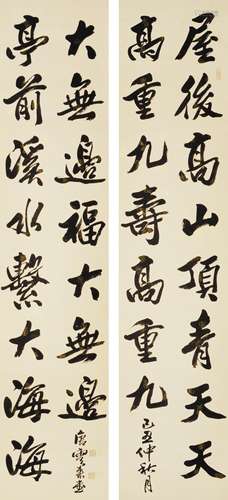 屋後高山頂青天天
高重九壽高重九
己丑仲秋月
亭前溪水繫大海海
大無邊福大無邊